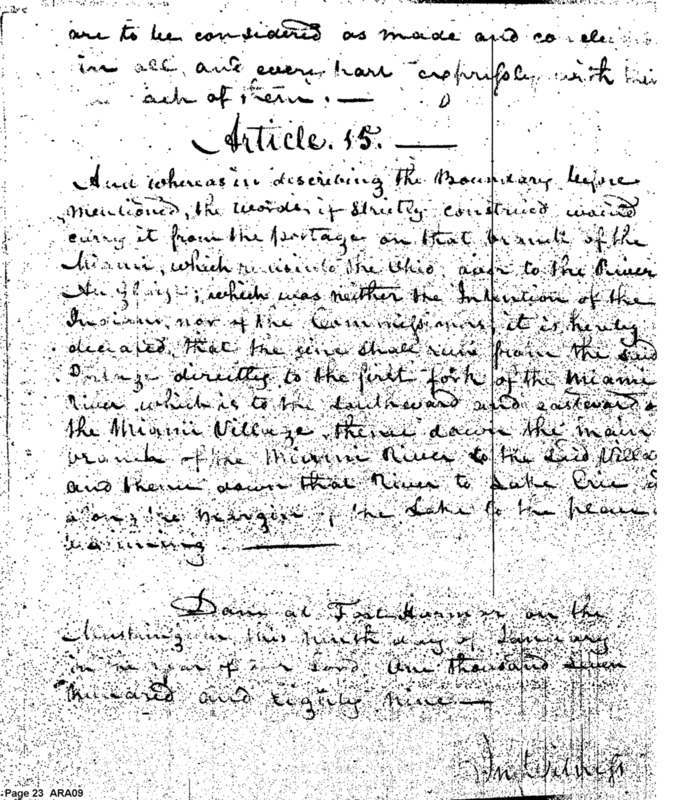 are to be considered as made and
in all, and every part expressly with
each of them. —
Article. 15. —
And whereas in describing the Boundary before
mentioned, the words, if strictly construed would
carry it from the portage on that branch of the
Miami, which runs into the Ohio, over to the River
Au Glaize; which was neither the Intention of the
Indians, nor of the Commissioners, it is hereby
declared, that the line shall run from the said
Portage directly to the first fork of the Miami
River, which is to the Southward and eastward
the Miami Village, thence down the main
branch of the Miami River to the said
and thence down that River to Lake Erie
along the margin of the Lake to the place
beginning. —
Done at Fort Harmar on the
Muskingum this ninth day of January
in the year of our Lord, One thousand seven
hundred and eighty nine —
In Witness
Page 23 ARA09